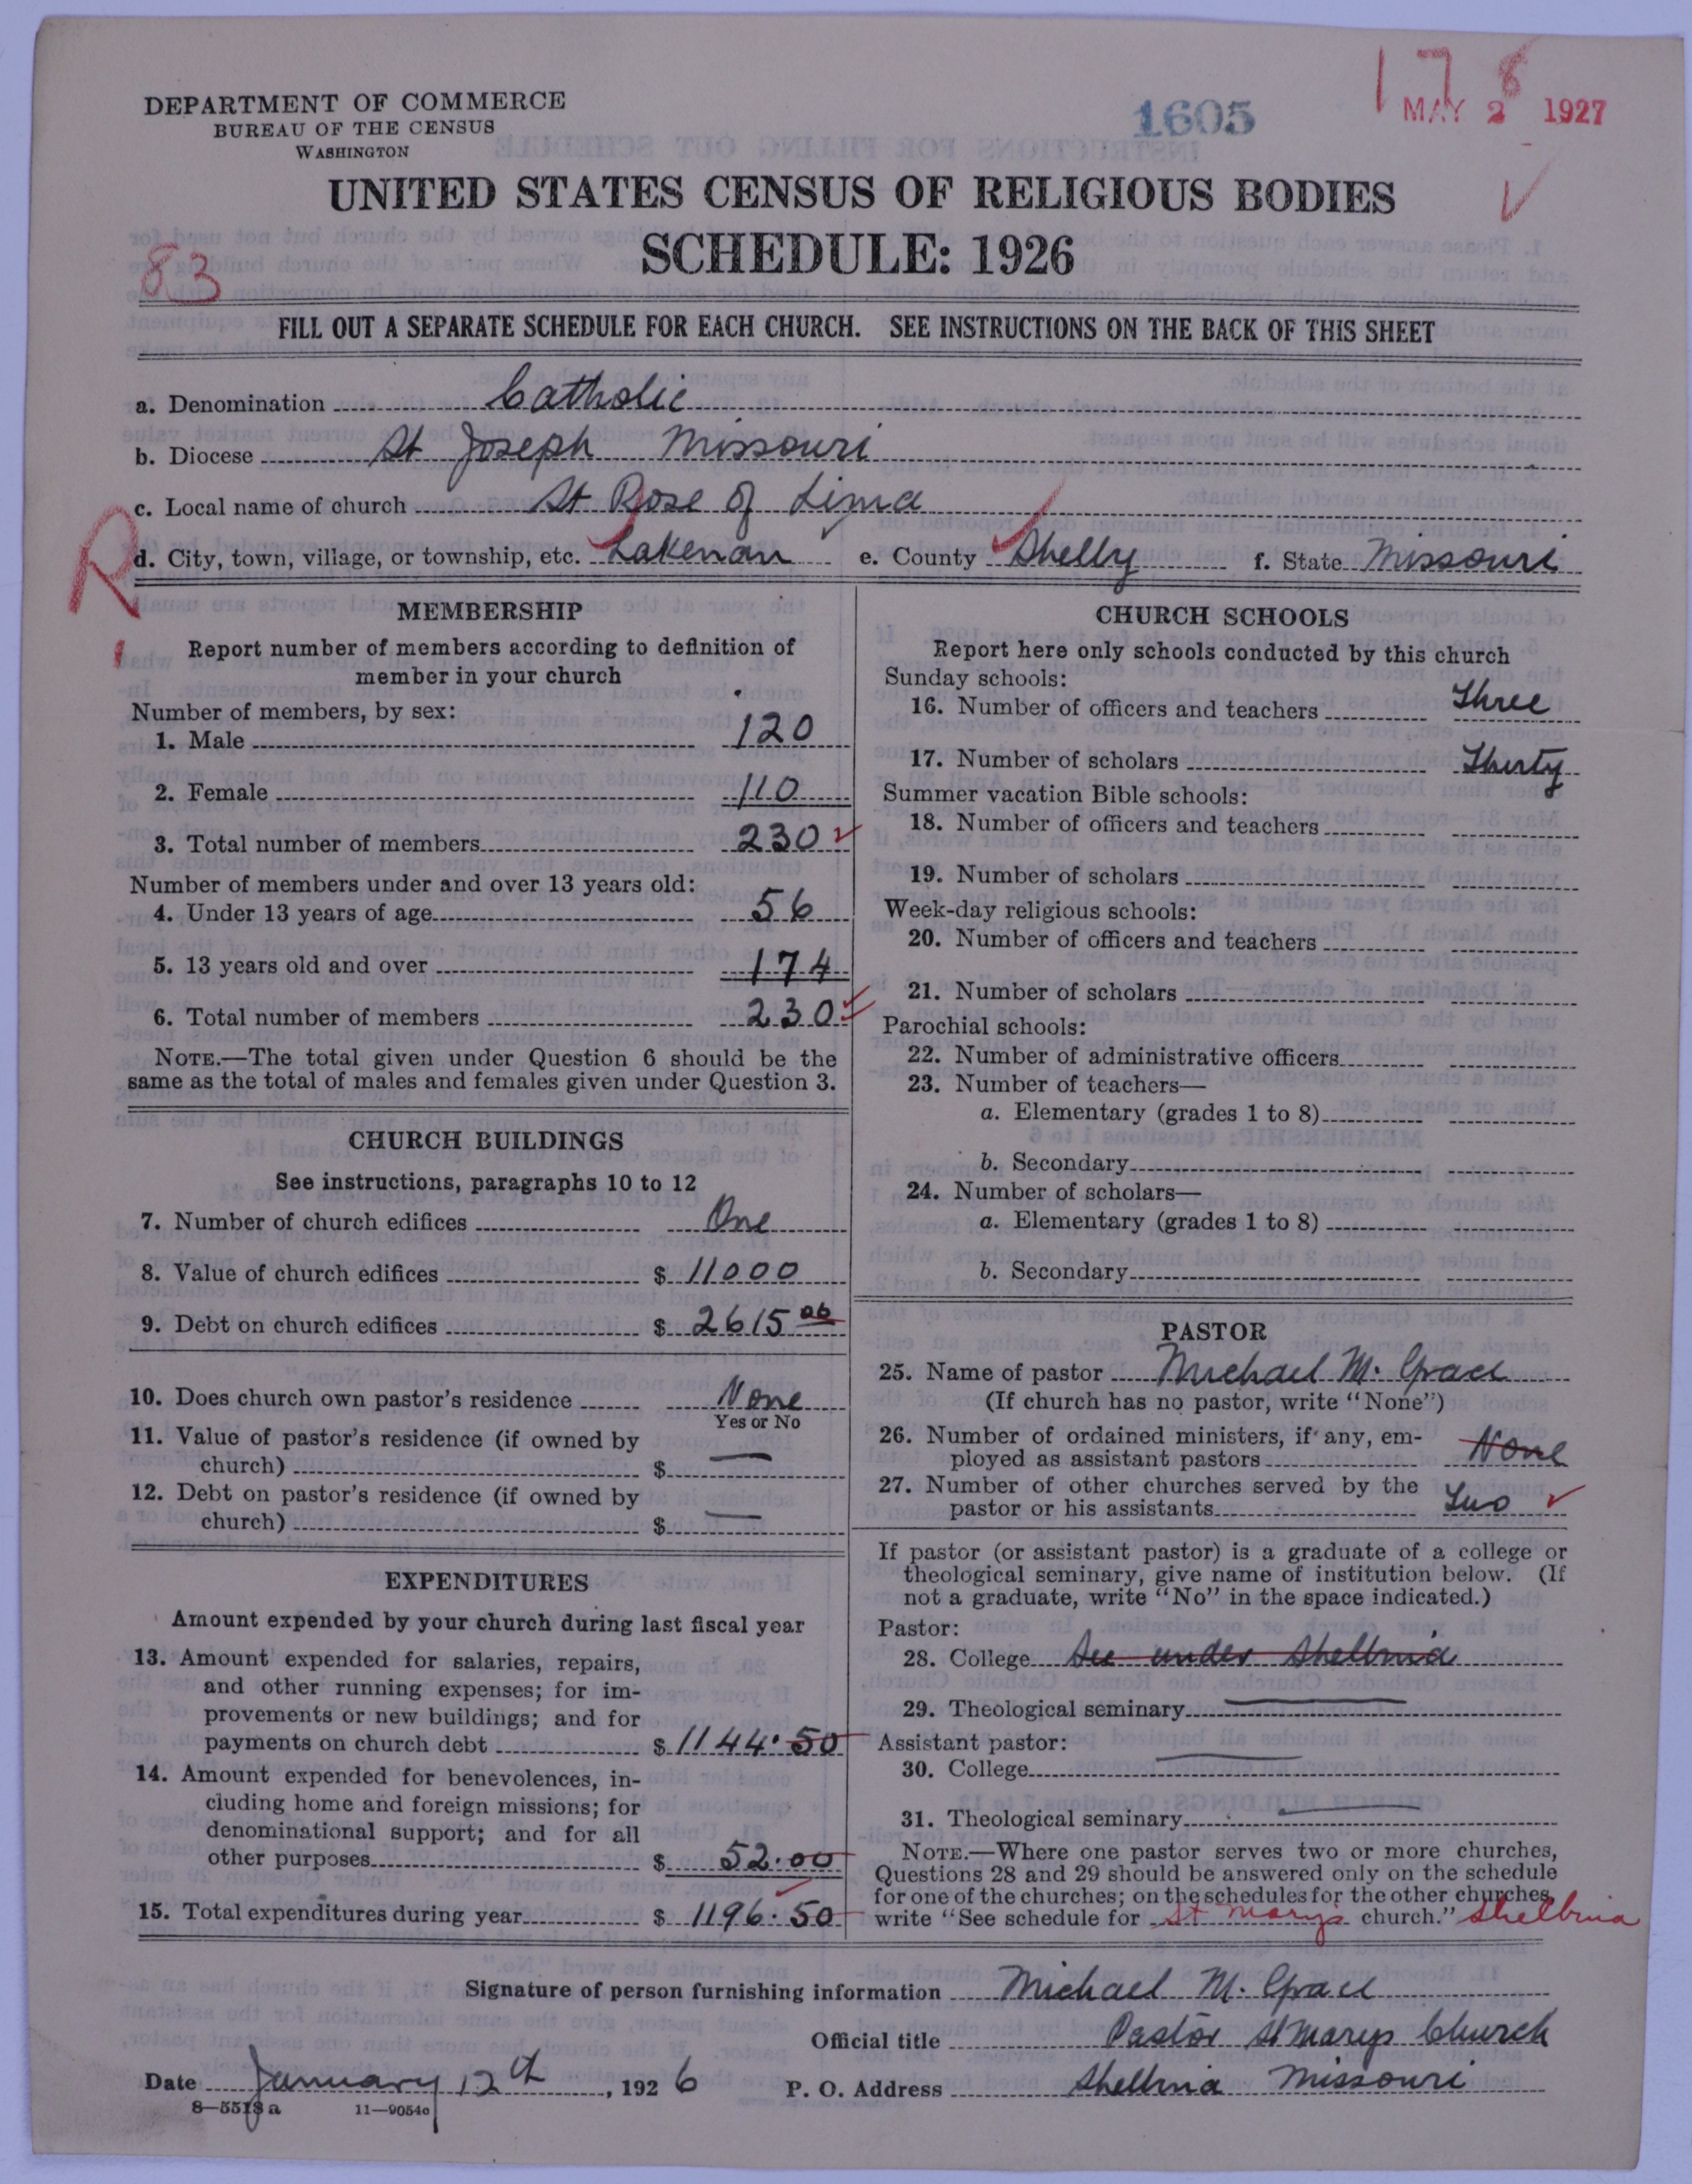 DEPARTMENT OF COMMERCE
BUREAU OF THE CENSUS
WASHINGTON
1605
176
MAY 2 1927
UNITED STATES CENSUS OF RELIGIOUS BODIES
SCHEDULE: 1926
83
FILL OUT A SEPARATE SCHEDULE FOR EACH CHURCH. SEE INSTRUCTIONS ON THE BACK OF THIS SHEET
a. Denomination Catholic
b. Diocese St Joseph Missouri
c. Local name of church St Rose of Lima
R
d. City, town, village, or township, etc. Lakenan e. County Shelly f. State Missouri
MEMBERSHIP
1
Report number of members according to definition of
member in your church
Number of members, by sex:
1. Male 120
2. Female 110
3. Total number of members 230
Number of members under and over 13 years old:
4. Under 13 years of age 56
5. 13 years old and over 174
6. Total number of members 230
NOTE.—The total given under Question 6 should be the
same as the total of males and females given under Question 3.
CHURCH BUILDINGS
See instructions, paragraphs 10 to 12
7. Number of church edifices One
8. Value of church edifices $ 11000
9. Debt on church edifices $ 2615 06
10. Does church own pastor's residence None
Yes or No
11. Value of pastor's residence (if owned by
church) $ —
12. Debt on pastor's residence (if owned by
church) $ —
EXPENDITURES
Amount expended by your church during last fiscal year
13. Amount expended for salaries, repairs,
and other running expenses; for im-
provements or new buildings; and for
payments on church debt $ 1144.50
14. Amount expended for benevolences, in-
cluding home and foreign missions; for
denominational support; and for all
other purposes $ 52.00
15. Total expenditures during year $ 1196.50
CHURCH SCHOOLS
Report here only schools conducted by this church
Sunday schools:
16. Number of officers and teachers Three
17. Number of scholars Thirty
Summer vacation Bible schools:
18. Number of officers and teachers
19. Number of scholars
Week-day religious schools:
20. Number of officers and teachers
21. Number of scholars
Parochial schools:
22. Number of administrative officers
23. Number of teachers—
a. Elementary (grades 1 to 8)
b. Secondary
24. Number of scholars—
a. Elementary (grades 1 to 8)
b. Secondary
PASTOR
25. Name of pastor Michael M. Grace
(If church has no pastor, write "None")
26. Number of ordained ministers, if any, em-
ployed as assistant pastors None
27. Number of other churches served by the
pastor or his assistants Two
If pastor (or assistant pastor) is a graduate of a college or
theological seminary, give name of institution below. (If
not a graduate, write "No" in the space indicated.)
Pastor:
28. College See under Shelbina
29. Theological seminary
Assistant pastor:
30. College
31. Theological seminary
NOTE.—Where one pastor serves two or more churches,
Questions 28 and 29 should be answered only on the schedule
for one of the churches; on the schedules for the other churches,
write "See schedule for St Mary's church." Shelbina
Signature of person furnishing information Michael M. Grace
Official title Pastor St Marys Church
Date January 12th, 1926 P. O. Address Shelbina Missouri
8—5518 a 11—9054c